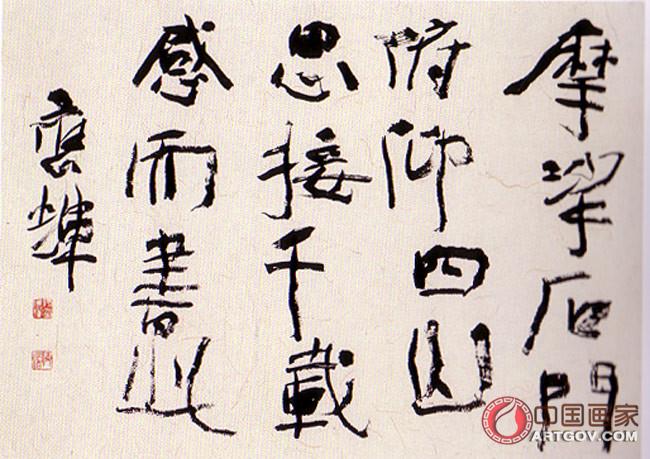 摩挲石門
俯仰四山
思接千載
感而書此
應輝
中国画家
ARTGOV.COM